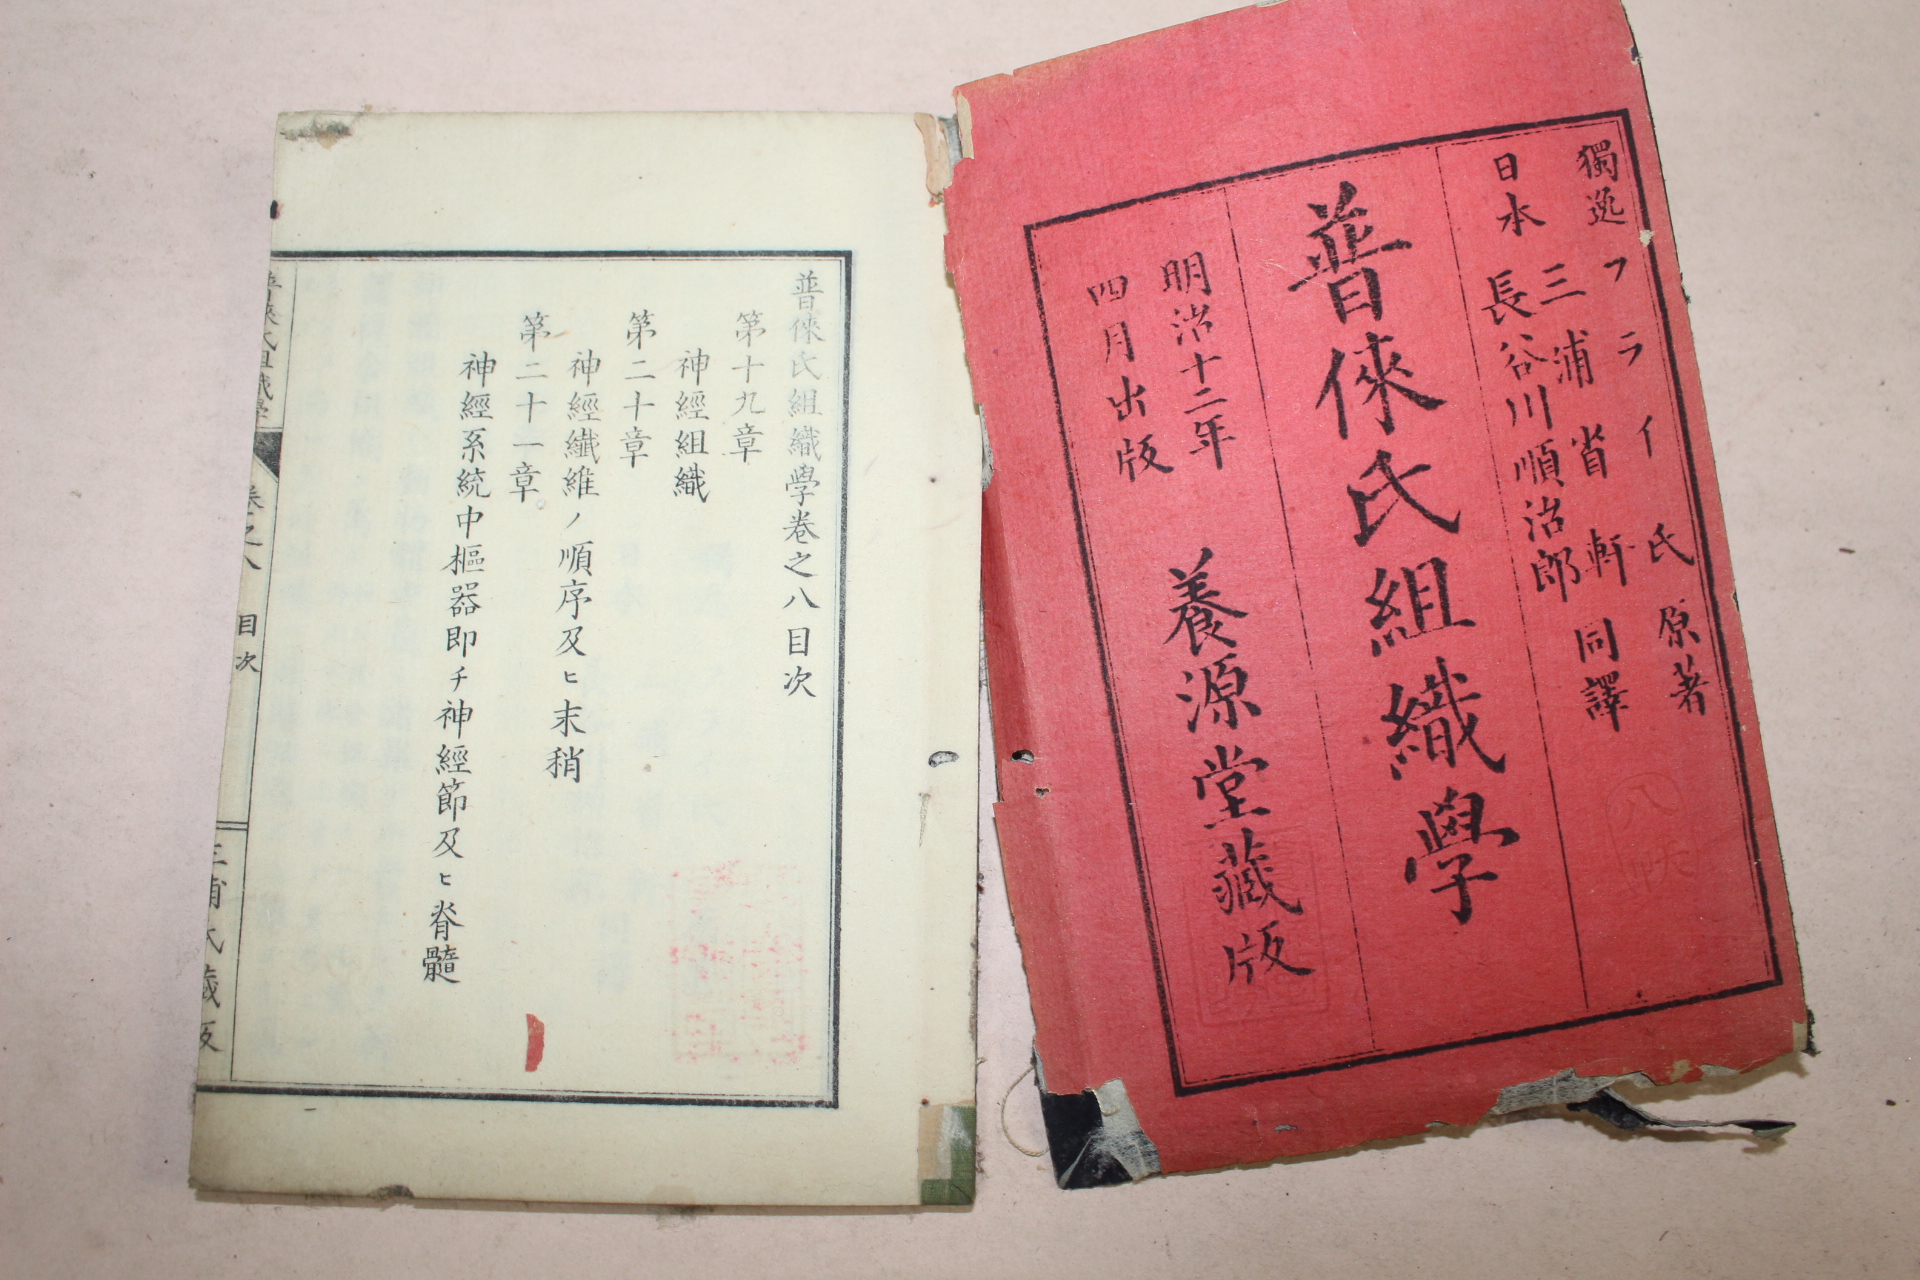 獨逸フライ氏原著
日本 三浦省軒
長谷川順治郎 同譯
普倈氏組織學
明治十二年
四月出版
養源堂藏版
普倈氏組織學卷之八目次
第十九章
神經組織
第二十章
神經纖維ノ順序及ヒ末稍
第二十一章。
神經系統中樞器即チ神經節及ヒ脊髓
普倈氏組織學 卷之八 目次 三浦氏藏版